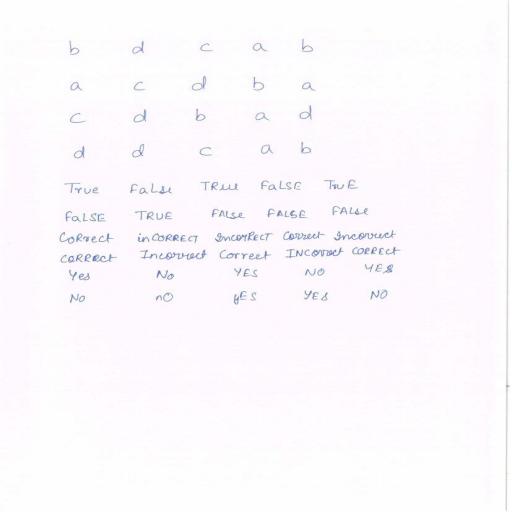 b d c a b
a c d b a
c d b a d
d d c a b
True FaLse TRue FaLSE TruE
FaLSE TRUE FALse FALSE FALse
CoRRect inCORRECT IncoRRECT Correct Incorrect
CORRECT Incorrect Correct INCOrrect CORRECT
Yes No YES NO YES
No nO yES YES NO